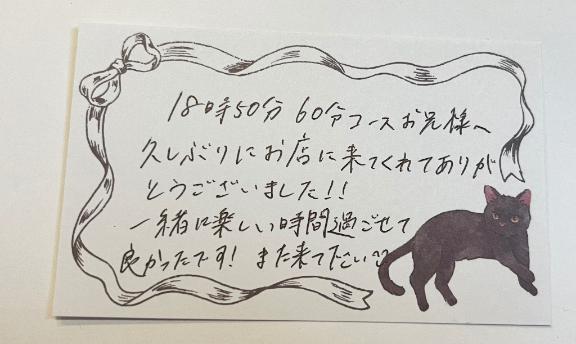 18時50分 60分コースお兄様へ
久しぶりにお店に来てくれてありが
とうございました!!
一緒に楽しい時間過ごせて
良かったです! また来て下さい^^